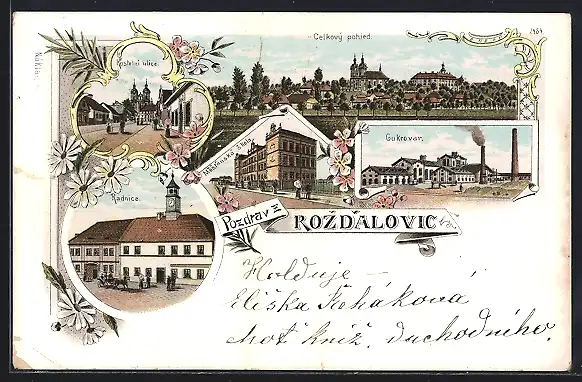 Celkový pohled.
Kostelní ulice.
Měšťanská škola
Cukrovar.
Radnice.
Pozdrav z
ROŽĎALOVIC
Holduje –
Eliška Řeháková
choť kníž. duchodního.